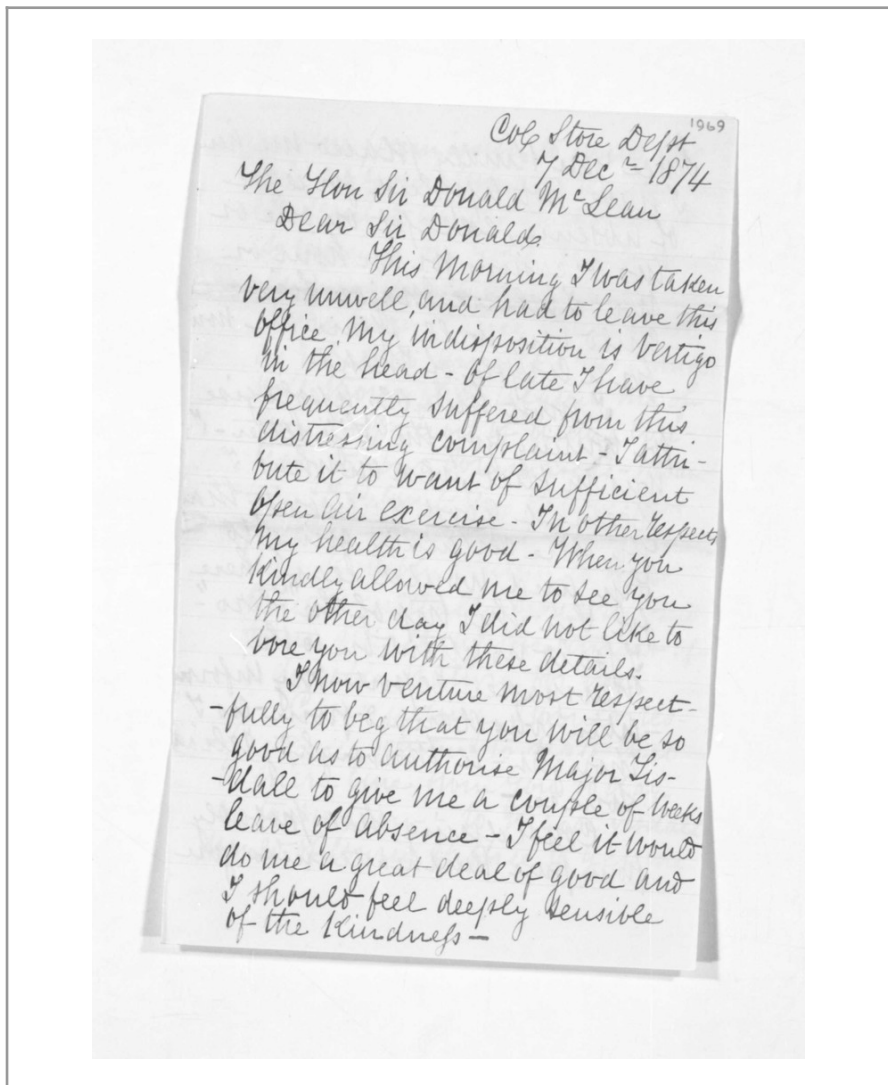 1969
Col Store Dept
7 Decr 1874
The Hon Sir Donald McLean
Dear Sir Donald
This Morning I was taken
very unwell, and had to leave this
Office. My indisposition is Vertigo
in the head - Of late I have
frequently suffered from this
distressing complaint - I attri-
bute it to want of sufficient
open air exercise - In other respects
my health is good - When you
kindly allowed me to see you
the other day I did not like to
bore you with these details.
I now venture most respect-
-fully to beg that you will be so
good as to authorise Major Tis-
-dall to give me a couple of weeks
leave of absence - I feel it would
do me a great deal of good and
I should feel deeply sensible
of the kindness -